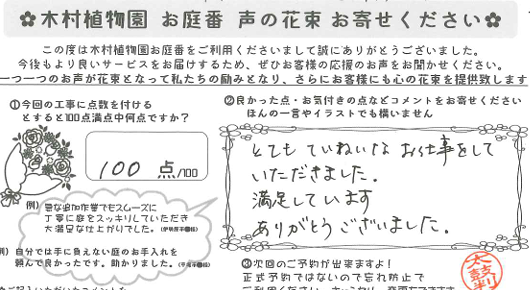 ✿木村植物園 お庭番 声の花束 お寄せください✿
この度は木村植物園お庭番をご利用くださいまして誠にありがとうございました。
今後もより良いサービスをお届けするため、ぜひお客様の応援のお声をお聞かせください。
一つ一つのお声が花束となって私たちの励みとなり、さらにお客様にも心の花束を提供致します
①今回の工事に点数を付ける
とすると100点満点中何点ですか？
100 点/100
例）急な追加作業でもスムーズに
丁寧に庭をスッキリしていただき
大満足な仕上がりでした。
例）自分では手に負えない庭のお手入れを
頼んで良かったです。助かりました。
②良かった点・お気付きの点などコメントをお寄せください
ほんの一言やイラストでも構いません
とても ていねいな お仕事をして
いただきました。
満足しています
ありがとうございました。
③次回のご予約が出来ますよ！
正式予約ではないので忘れ防止で
太鼓判